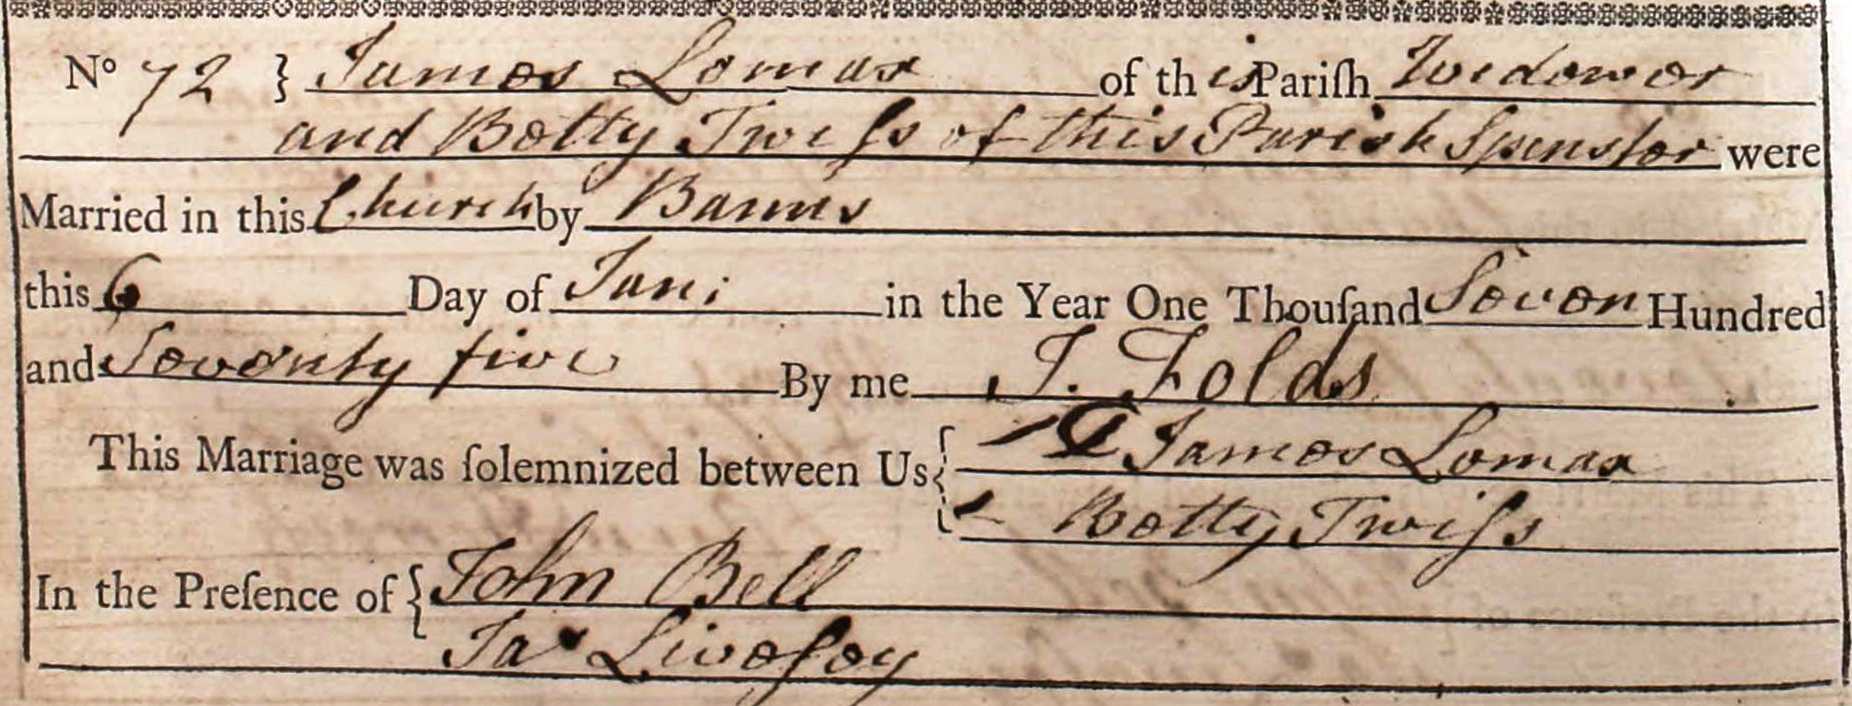 No 72 } James Lomax of this Pariſh Widower
and Betty Twiſs of this Parish Spinster were
Married in this Church by Banns
this 6 Day of Jani in the Year One Thouſand Seven Hundred
and Seventy five By me J. Folds
This Marriage was ſolemnized between Us { James Lomax
Betty Twiſs
In the Preſence of { John Bell
Jas Liveſey